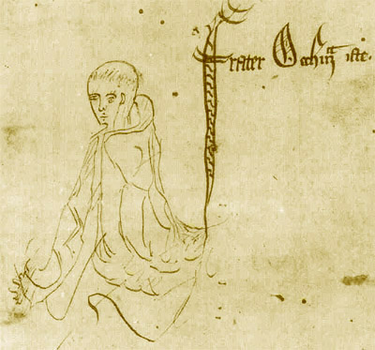 Frater Occhᵃm iste.